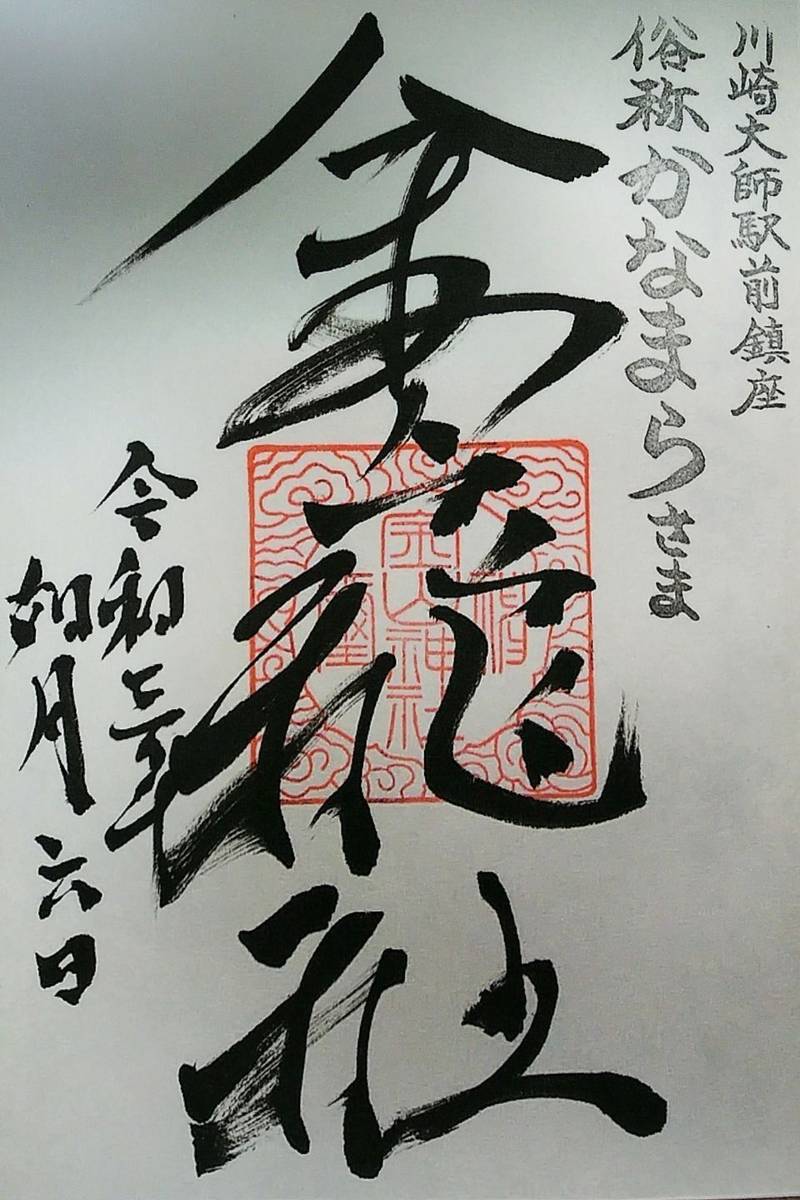 川崎大師駅前鎮座
俗称かなまらさま
金龍社
金山神社
令和二年
如月六日